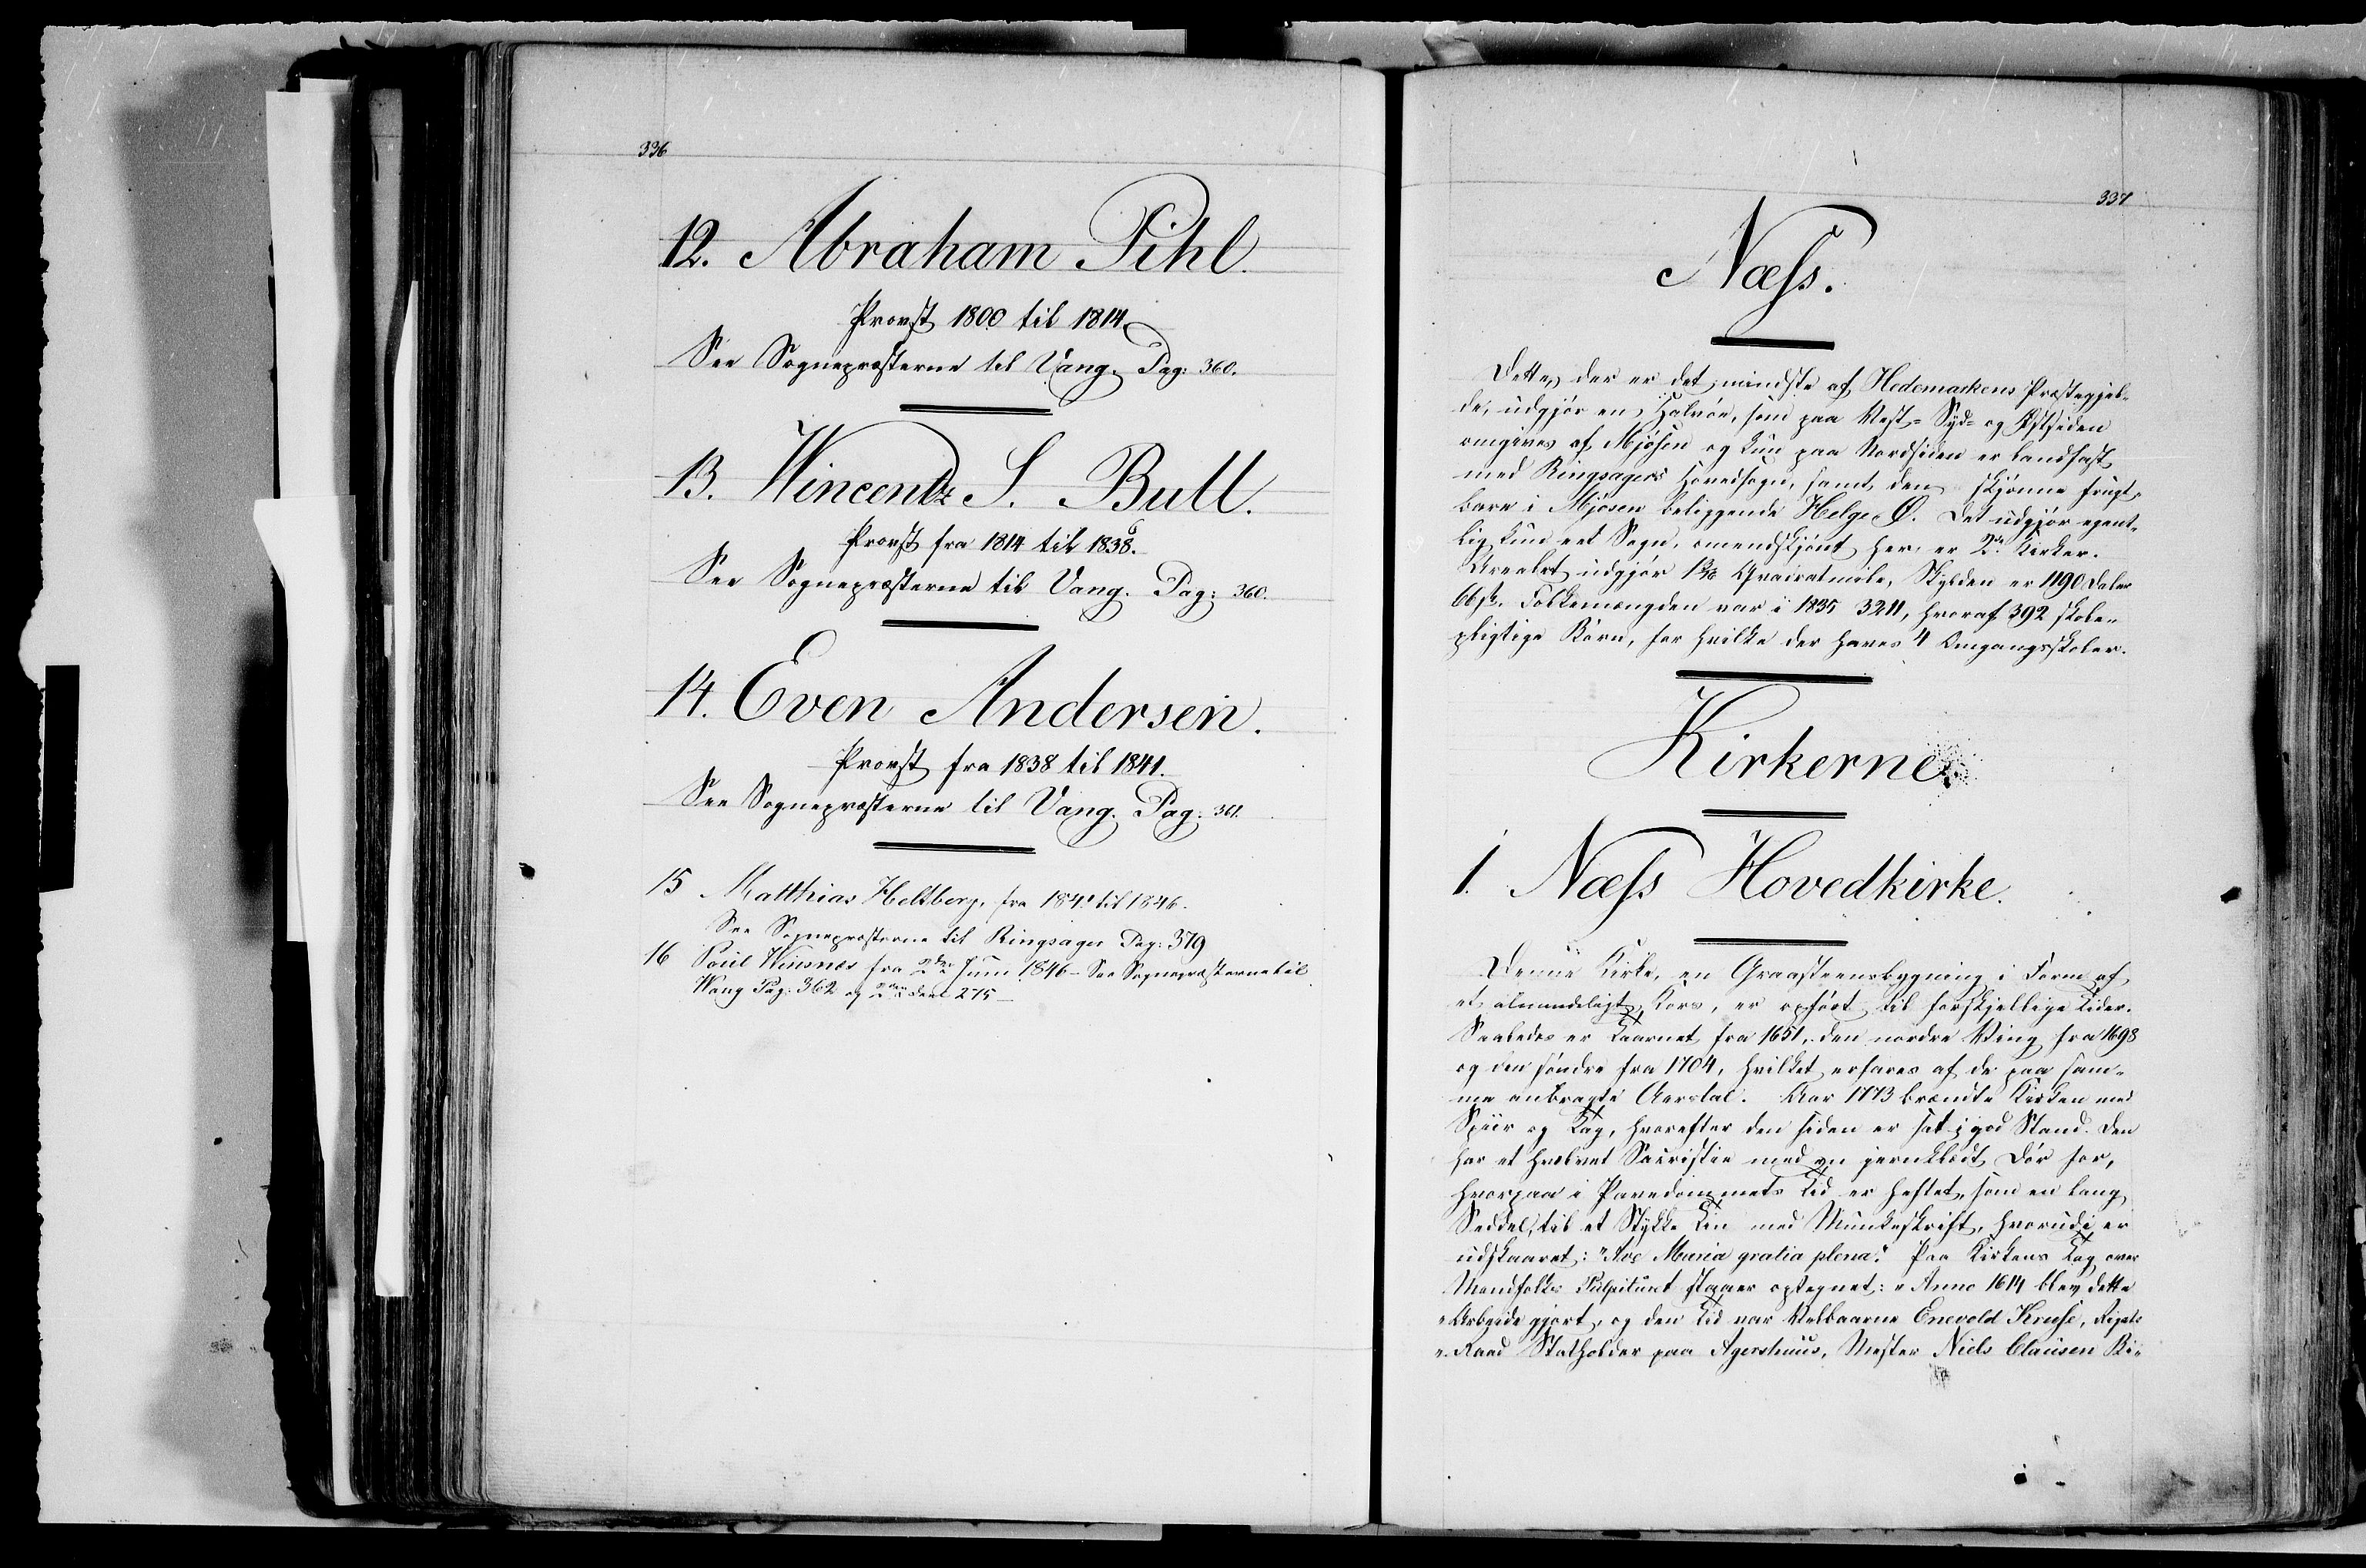 336
12. Abraham Pihl.
Provst 1800 til 1814.
See Sognepræsterne til Vang. Pag: 360.
13. Wincentz S. Bull.
Provst fra 1814 til 1838.
See Sognepræsterne til Vang. Pag: 360.
14. Even Andersen.
Provst fra 1838 til 1841.
See Sognepræsterne til Vang. Pag: 361.
15 Matthias Heltberg, fra 1841 til 1846.
See Sognepræsterne til Ringsager Pag: 379
16 Paul Winsnes fra 2den Juni 1846 - See Sognepræsterne til
Wang Pag: 362 og 2den Deel 275 -
337
Næss.
Dette, der er det mindste af Hedemarkens Præstegjel-
de, udgjør en Halvöe, som paa Vest- Syd- og Østsiden
omgives af Mjøsen og kun paa Nordsiden er landfast
med Ringsagers Hovedsogn, samt den skjønne frugt-
bare i Mjøsen beliggende Helge-Ø. Det udgjør egent-
lig kun eet Sogn, omendskjönt her er 2de Kirker.
Arealet udgjør Qvadratmile, Skylden er 1190 Daler
66 sk. Folkemængden var i 1835 3211, hvoraf 392 skole-
pligtige Börn, for hvilke der haves 4 Omgangsskoler.
Kirkerne.
1. Næss Hovedkirke.
Denne Kirke, en Graasteensbygning i Form af
et almindeligt Kors, er opfört til forskjellige Tider.
Saaledes er Taarnet fra 1651, den nordre Ving fra 1698
og den söndre fra 1704, hvilket erfares af de paa sam-
me anbragte Aarstal. Aar 1773 brændte Kirken med
Spiir og Tag, hvorefter den siden er sat i god Stand. Den
har et hvælvet Sacristie med en jernklædt Dör for,
hvorpaa i Pavedömmets Tid er heftet, som en lang
Seddel, til et Stykke Tin med Munkeskrift, hvorudi er
udskaaret: "Ave Maria gratia plena." Paa Kirkens Tag over
Mandfolke Pulpituret staaer optegnet: "Anno 1614 blev dette
"Arbeide gjort, og den Tid var Velbaarne Enevold Kruse, Rigets
"Raad Statholder paa Agershuus, Mester Niels Clausen Bi-